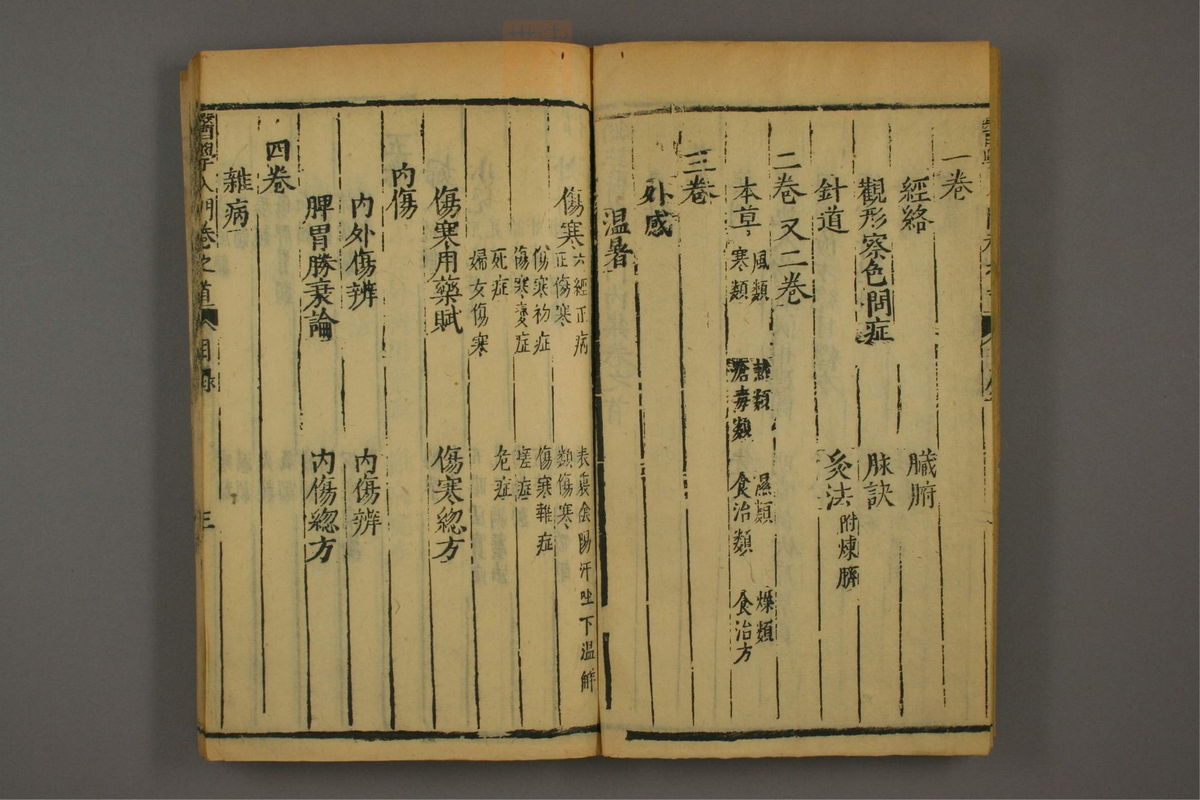 一卷
經絡 臓腑
觀形察色問症 脉訣
針道 灸法 附煉臍
二卷 又二卷
本草 風類 熱類 濕類 燥類
寒類 瘡毒類 食治類 食治方
三卷
外感
温暑
傷寒 六經正病 表裏陰陽汗吐下温解
正傷寒 類傷寒
傷寒初症 傷寒雜症
傷寒變症 瘥症
死症 危症
婦女傷寒
傷寒用藥賦 傷寒總方
内傷
内外傷辨 内傷辨
脾胃勝衰論 内傷總方
四卷
雜病
醫學入門卷之首 目錄 三